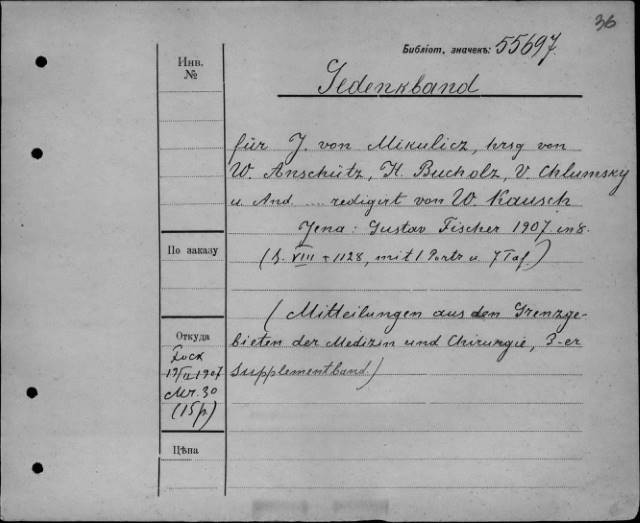 36
Библіот. значекъ: 55697.
Gedenkband
für J. von Mikulicz, hrsg von
W. Anschütz, K. Bucholz, V. Chlumsky
u. And .... redigirt von W. Kausch
Jena: Gustav Fischer 1907 in 8.
(S. VIII + 1128, mit 1 Portr u. 7 Taf.)
(Mitteilungen aus den Grenzge-
bieten der Medizin und Chirurgie, 3-er
Supplementband.)
Инв.
№
По заказу
Откуда
1907
Mr. 30
(15 р.)
Цѣна